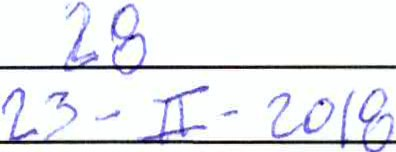 28
23-II-2018